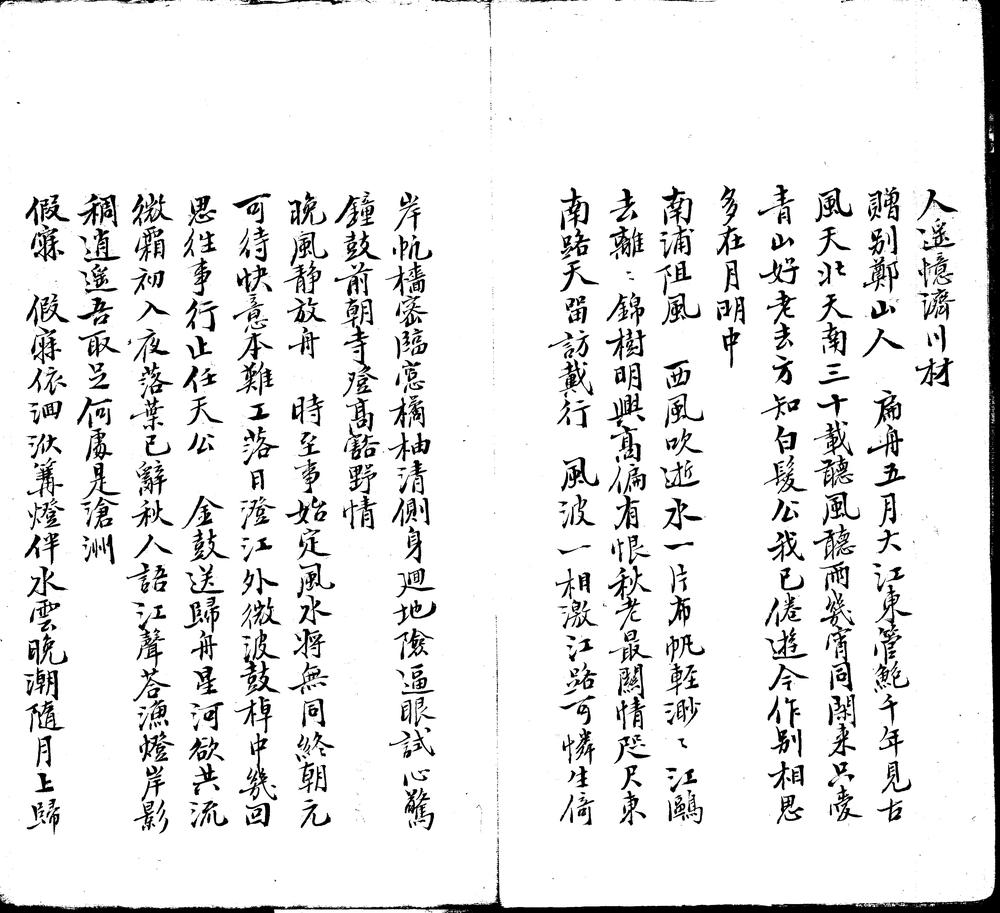 人遥憶濟川材
贈别鄭山人　扁舟五月大江東管鮑千年見古
風天北天南三十載聽風聽雨幾宵同閑来只愛
青山好老去方知白髮公我已倦遊今作别相思
多在月明中
南浦阻風　西風吹逝水一片布帆輕渺〻江鷗
去離〻錦樹明興高偏有恨秋老最關情咫尺東
南路天留訪戴行　風波一相激江路可憐生倚
岸帆檣密臨窓橘柚清側身廻地險逼眼試心驚
鐘鼓前朝寺登高豁野情
晚風静放舟　時至事始定風水将無同終朝元
可待快意本難工落日澄江外微波鼓棹中幾回
思徃事行止任天公　金鼓送歸舟星河欲共流
微霜初入夜落葉已辭秋人語江聲荅漁燈岸影
稠逍遥吾取足何處是滄洲
假寐　假寐依洄洑篝燈伴水雲晚潮隨月上歸